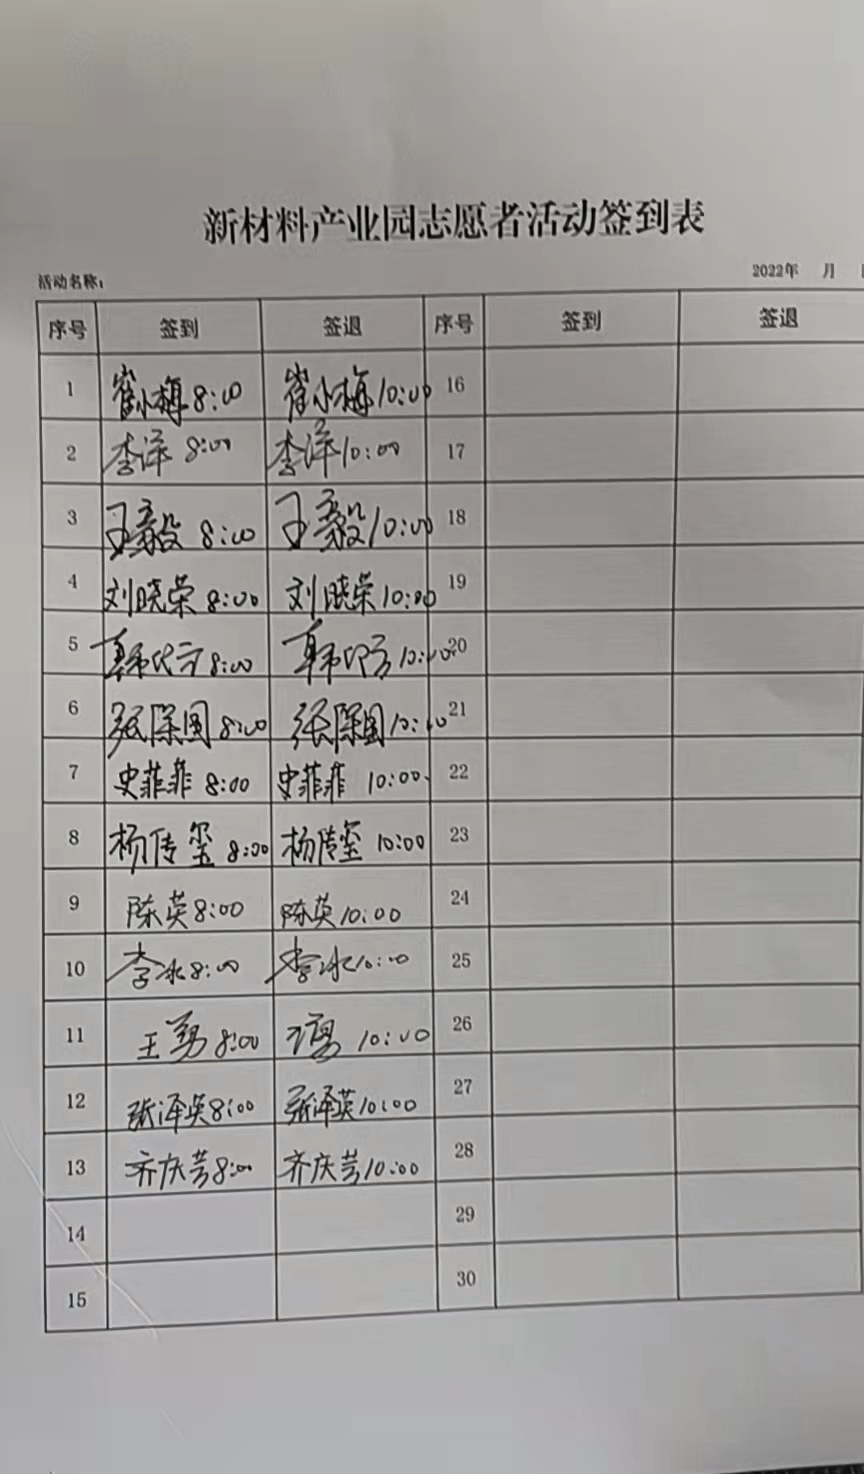 新材料产业园志愿者活动签到表
活动名称： 2022年 月
序号 签到 签退 序号 签到 签退
1 崔小梅 8:00 崔小梅 10:00 16
2 李泽 8:00 李泽 10:00 17
3 王毅 8:00 王毅 10:00 18
4 刘晓荣 8:00 刘晓荣 10:00 19
5 8:00 10:00 20
6 张保国 8:00 张保国 10:00 21
7 史菲菲 8:00 史菲菲 10:00 22
8 杨传玺 8:00 杨传玺 10:00 23
9 陈英 8:00 陈英 10:00 24
10 李冰 8:00 李冰 10:00 25
11 王勇 8:00 王勇 10:00 26
12 张泽英 8:00 张泽英 10:00 27
13 齐庆芳 8:00 齐庆芳 10:00 28
14 29
15 30